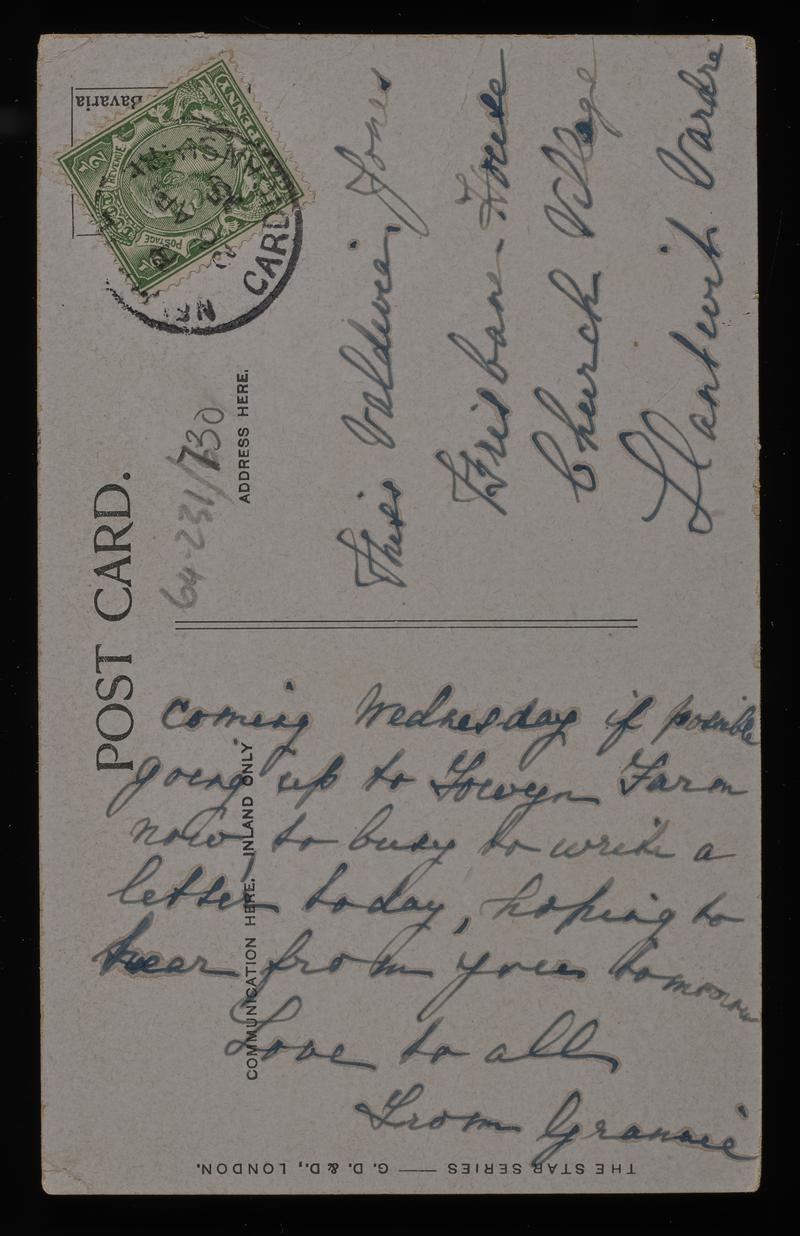 POST CARD.
Bavaria
REVENUE
POSTAGE
1/2
CARDI
64-231/730
ADDRESS HERE.
Miss Valdwia Jones
Brisbane House
Church Village
Llantwit Vardre
COMMUNICATION HERE. INLAND ONLY
coming Wednesday if possible
going up to Towyn Farm
now, to busy to write a
letter today, hoping to
hear from you tomorrow
Love to all
From Grannie
THE STAR SERIES — G. D. & D., LONDON.